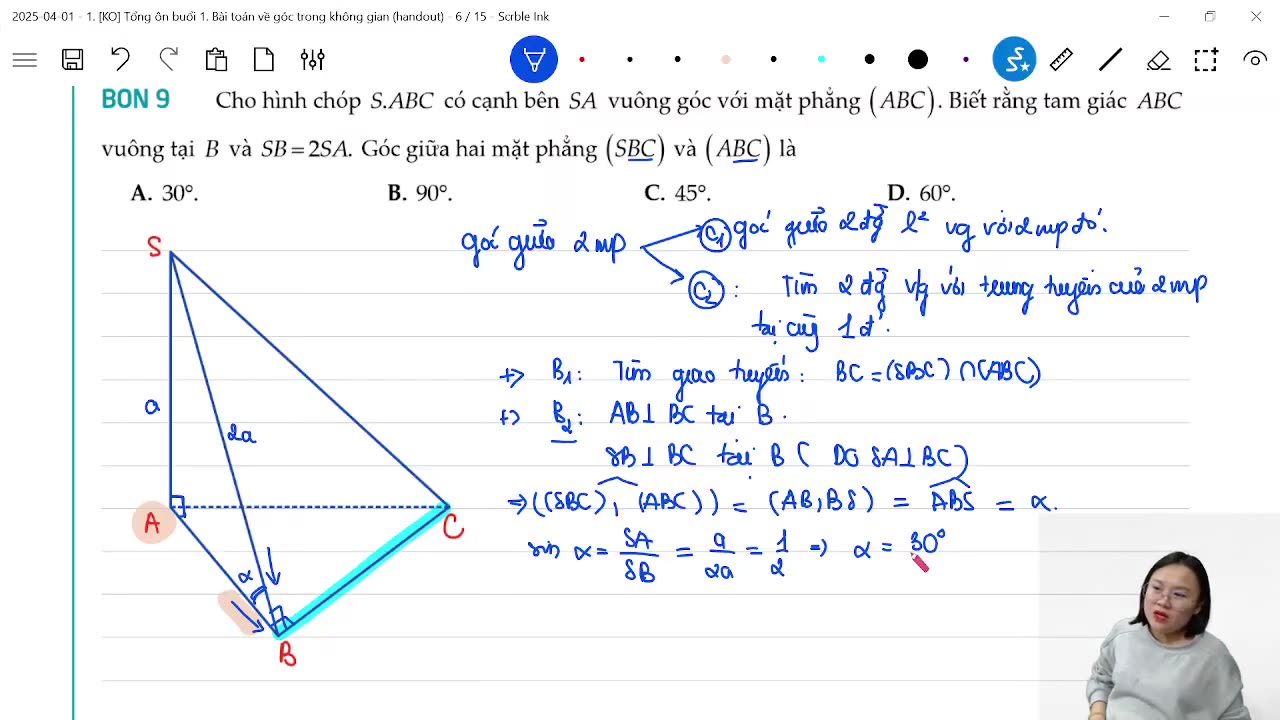 2025-04-01 - 1. [KO] Tổng ôn buổi 1. Bài toán về góc trong không gian (handout) - 6 / 15 - Scrble Ink
BON 9 Cho hình chóp S.ABC có cạnh bên SA vuông góc với mặt phẳng (ABC). Biết rằng tam giác ABC
vuông tại B và SB = 2SA. Góc giữa hai mặt phẳng (SBC) và (ABC) là
A. 30°. B. 90°. C. 45°. D. 60°.
góc giữa 2 mp
C1 góc giữa 2 đg l² vg với 2 mp đó.
C2: Tìm 2 đg v/g với trung tuyến của 2 mp
tại cùng 1 đ'.
+> B1: Tìm giao tuyến: BC = (SBC) ∩ (ABC)
+> B2: AB ⊥ BC tại B.
SB ⊥ BC tại B ( DO SA ⊥ BC)
=> ((SBC), (ABC)) = (AB, BS) = ABS = α.
sin α = SA/SB = a/2a = 1/2 => α = 30°
S
a
2a
A
C
α
B